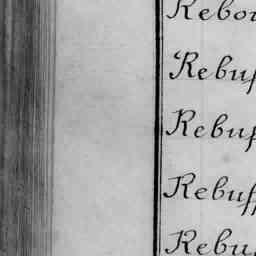 Rebou
Rebuf
Rebuf
Rebuff
Rebu